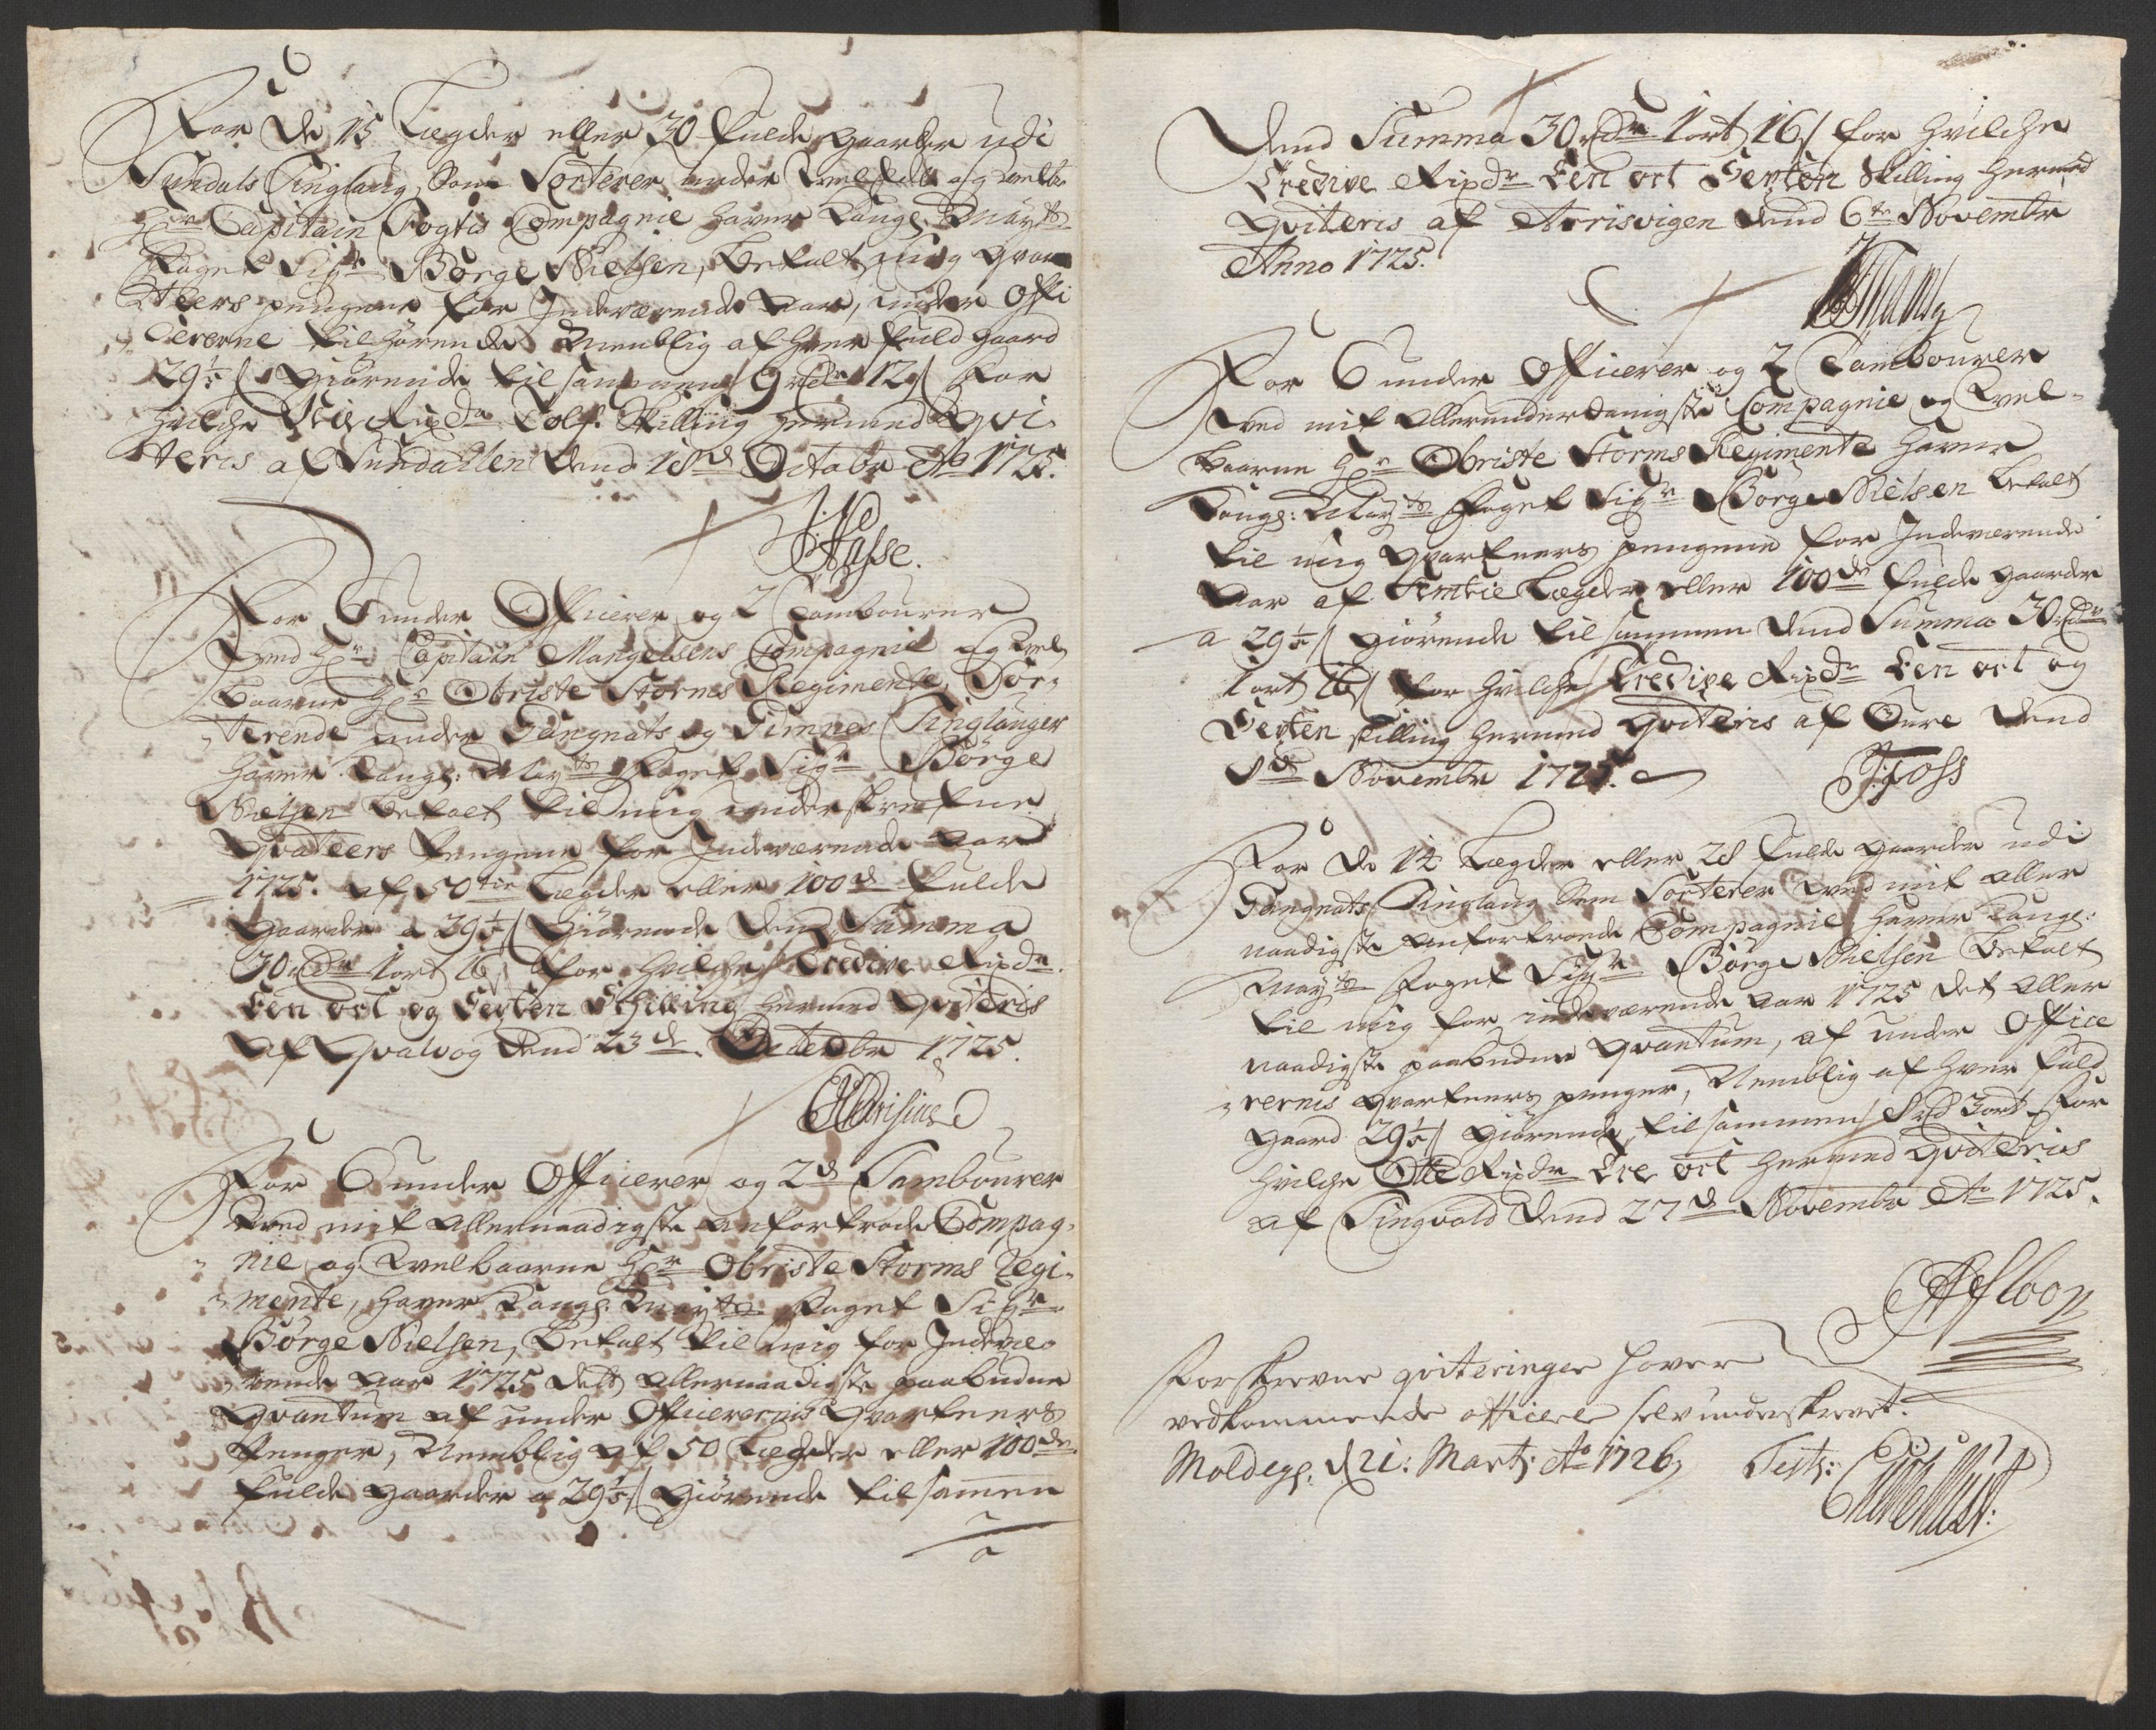 For De 15 Lægder eller 30 fulde gaarder udi
Sundals Tinglaug, Som Sorterer under Velædle og velb:
Hr Capitain Vogtis Compagnie haver Kongl. May:ts
Foget Sigr Børge Nielsen, Betalt mig Qvar
teers pengene for Indeværende Aar, under Offi
cererne tilhørende Nemblig af hver fuld gaard
29⅕ s giørende tilsammen 9 rdr 12 s For
hvilche Nie Rixdr Tolf Skilling hermed Qvi
teris af Sundallen dend 18d Octobr Ao 1725.
Hasse.
For 6 under Officerer og 2 Tambourer
ved Hr Capitain Mangelsens Compagnie og Vel
baarne Hr Obriste Storms Regimente, Sor-
terende under Stangviks og Surendals Tinglauger
haver Kongl: May:ts Foget Sigr Børge
Nielsen betalt til mig underskrefne
Qvarteers Pengene for Indeværende Aar
1725. af 50tie Lægder eller 100d fulde
Gaarder a 29⅕ s Giørende dend Summa
30 rdr 1 ort 16 s for hvilche Tredive Rixdr
Een ort og Sexten Skilling hermed Qviteris
af Qvalvog dend 23d Octobr 1725.
For 6 under Officerer og 2d Tambourer
ved mit allernaadigste anfortrode Compag-
nie og Velbaarne Hr Obriste Storms Regi-
mente, haver Kongl. May:ts Foget Sigr
Børge Nielsen, Betalt til mig for Indevæ-
rende Aar 1725 det allernaadigste paabudne
Qvantum af under Officerernis Qvarteers
Penger, Nemblig af 50 Lægder eller 100de
fulde gaarder a 29⅕ s giørende tilsamen
Dend Summa 30 rdr 1 ort 16 s for hvilche
Tredive Rixdr Een ort Sexten Skilling hermed
Qviteris af Arrisvigen dend 6te Novembr
Anno 1725.
For 6 under Officerer og 2 Tambourer
ved mit Allerunderdanigste Compagnie og Vel-
baarne Hr Obriste Storms Regimente haver
Kongl: May:ts Foget Sigr Børge Nielsen betalt
til mig Qvarteers pengene for Indeværende
Aar af Femtie Lægder eller 100de fulde gaarder
a 29⅕ s giørende tilsammen dend Summa 30 rdr
1 ort 16 s for hvilche Tredive Rixdr Een ort og
Sexten skilling hermed Qviteris af Øure dend
8d Novembr 1725.
Foss
For de 14 Lægder eller 28 fulde gaarder udi
Stangviks Tinglaug Som Sorterer ved mit aller
naadigste anfortroede Compagnie haver Kongl:
May:ts Foget Sigr Børge Nielsen betalt
til mig for indeværende Aar 1725 det aller
naadigste paabudne Qvantum, af under Office
rernis Qvarteers penger, Nemblig af hver fuld
gaard 29⅕ s giørende tilsammen 8 rd 3 ort For
hvilche Otte Rixdr Tre ort hermed Qviteris
af Tingvold dend 27d Novembr Ao 1725.
Forskrevne qviteringer haver
vedkommende officerer selv underskrevet.
Moldegd. d 21: Marts: Ao 1726, Test: